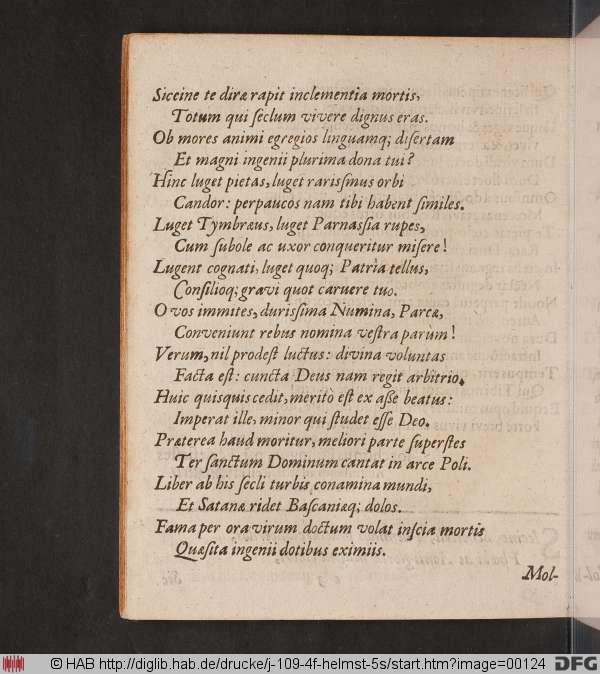 Siccine te diræ rapit inclementia mortis,
Totum qui ſeclum vivere dignus eras.
Ob mores animi egregios linguamq; diſertam
Et magni ingenii plurima dona tui?
Hinc luget pietas, luget rariſſimus orbi
Candor: perpaucos nam tibi habent ſimiles.
Luget Tymbræus, luget Parnaſſia rupes,
Cum ſubole ac uxor conqueritur miſere!
Lugent cognati, luget quoq; Patria tellus,
Conſilioq; gravi quot caruere tuo.
O vos immites, duriſſima Numina, Parcæ,
Conveniunt rebus nomina veſtra parùm!
Verum, nil prodeſt luctus: divina voluntas
Facta eſt: cuncta Deus nam regit arbitrio.
Huic quisquis cedit, meritò eſt ex aſſe beatus:
Imperat ille, minor qui ſtudet eſſe Deo.
Præterea haud moritur, meliori parte ſuperſtes
Ter ſanctum Dominum cantat in arce Poli.
Liber ab his ſecli turbis conamina mundi,
Et Satanæ ridet Baſcaniæq; dolos.
Fama per ora virum doctum volat inſcia mortis
Quæſita ingenii dotibus eximiis.
Mol-
© HAB http://diglib.hab.de/drucke/j-109-4f-helmst-5s/start.htm?image=00124
DFG